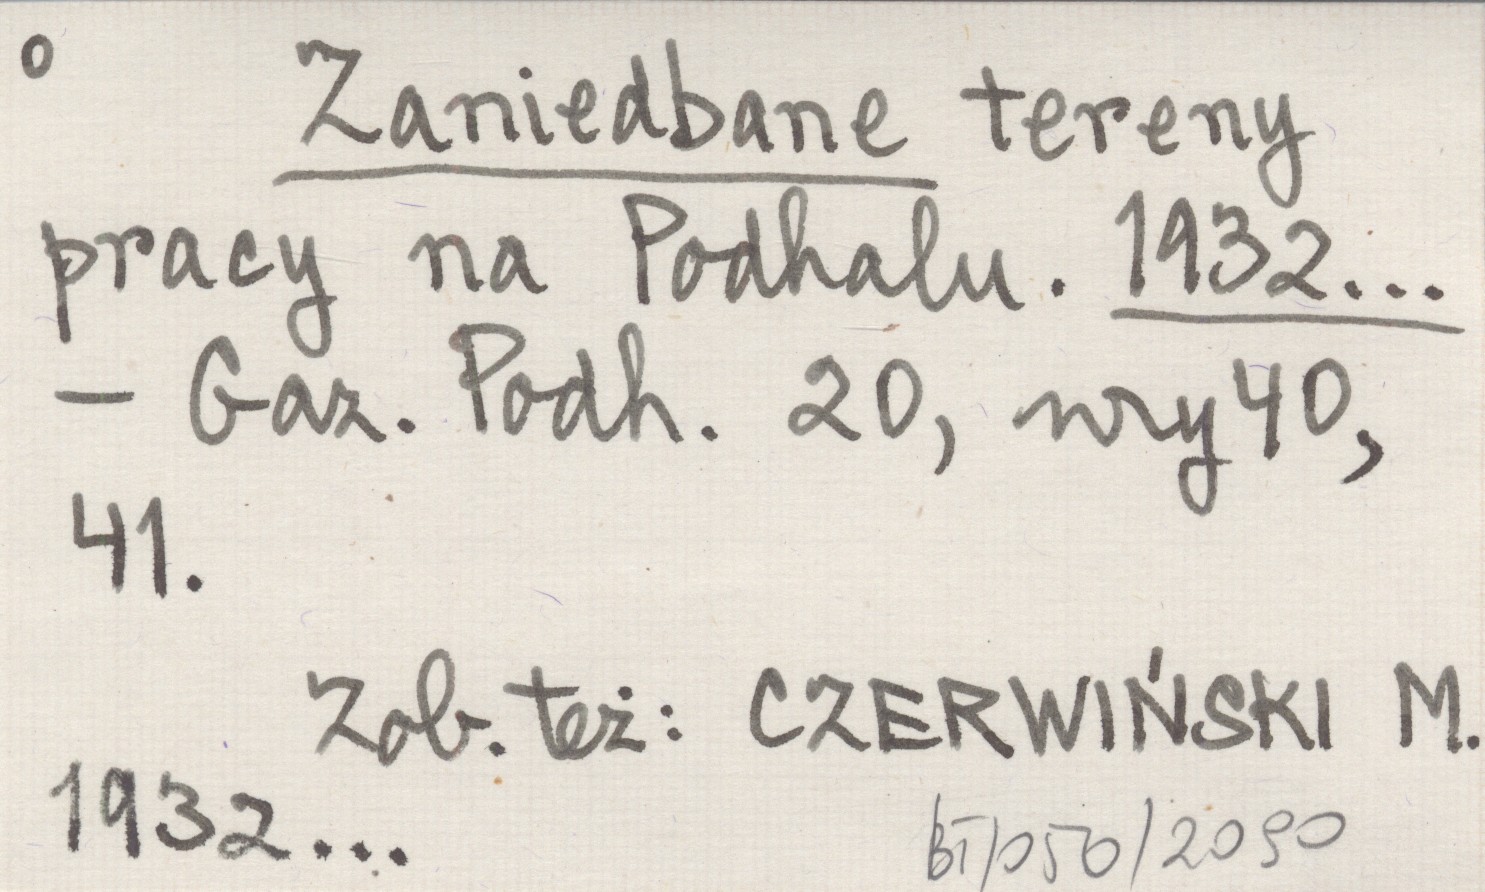 o Zaniedbane tereny
pracy na Podhalu. 1932...
– Gaz. Podh. 20, nry 40,
41.
Zob. też: CZERWIŃSKI M.
1932...
BT/050/2090